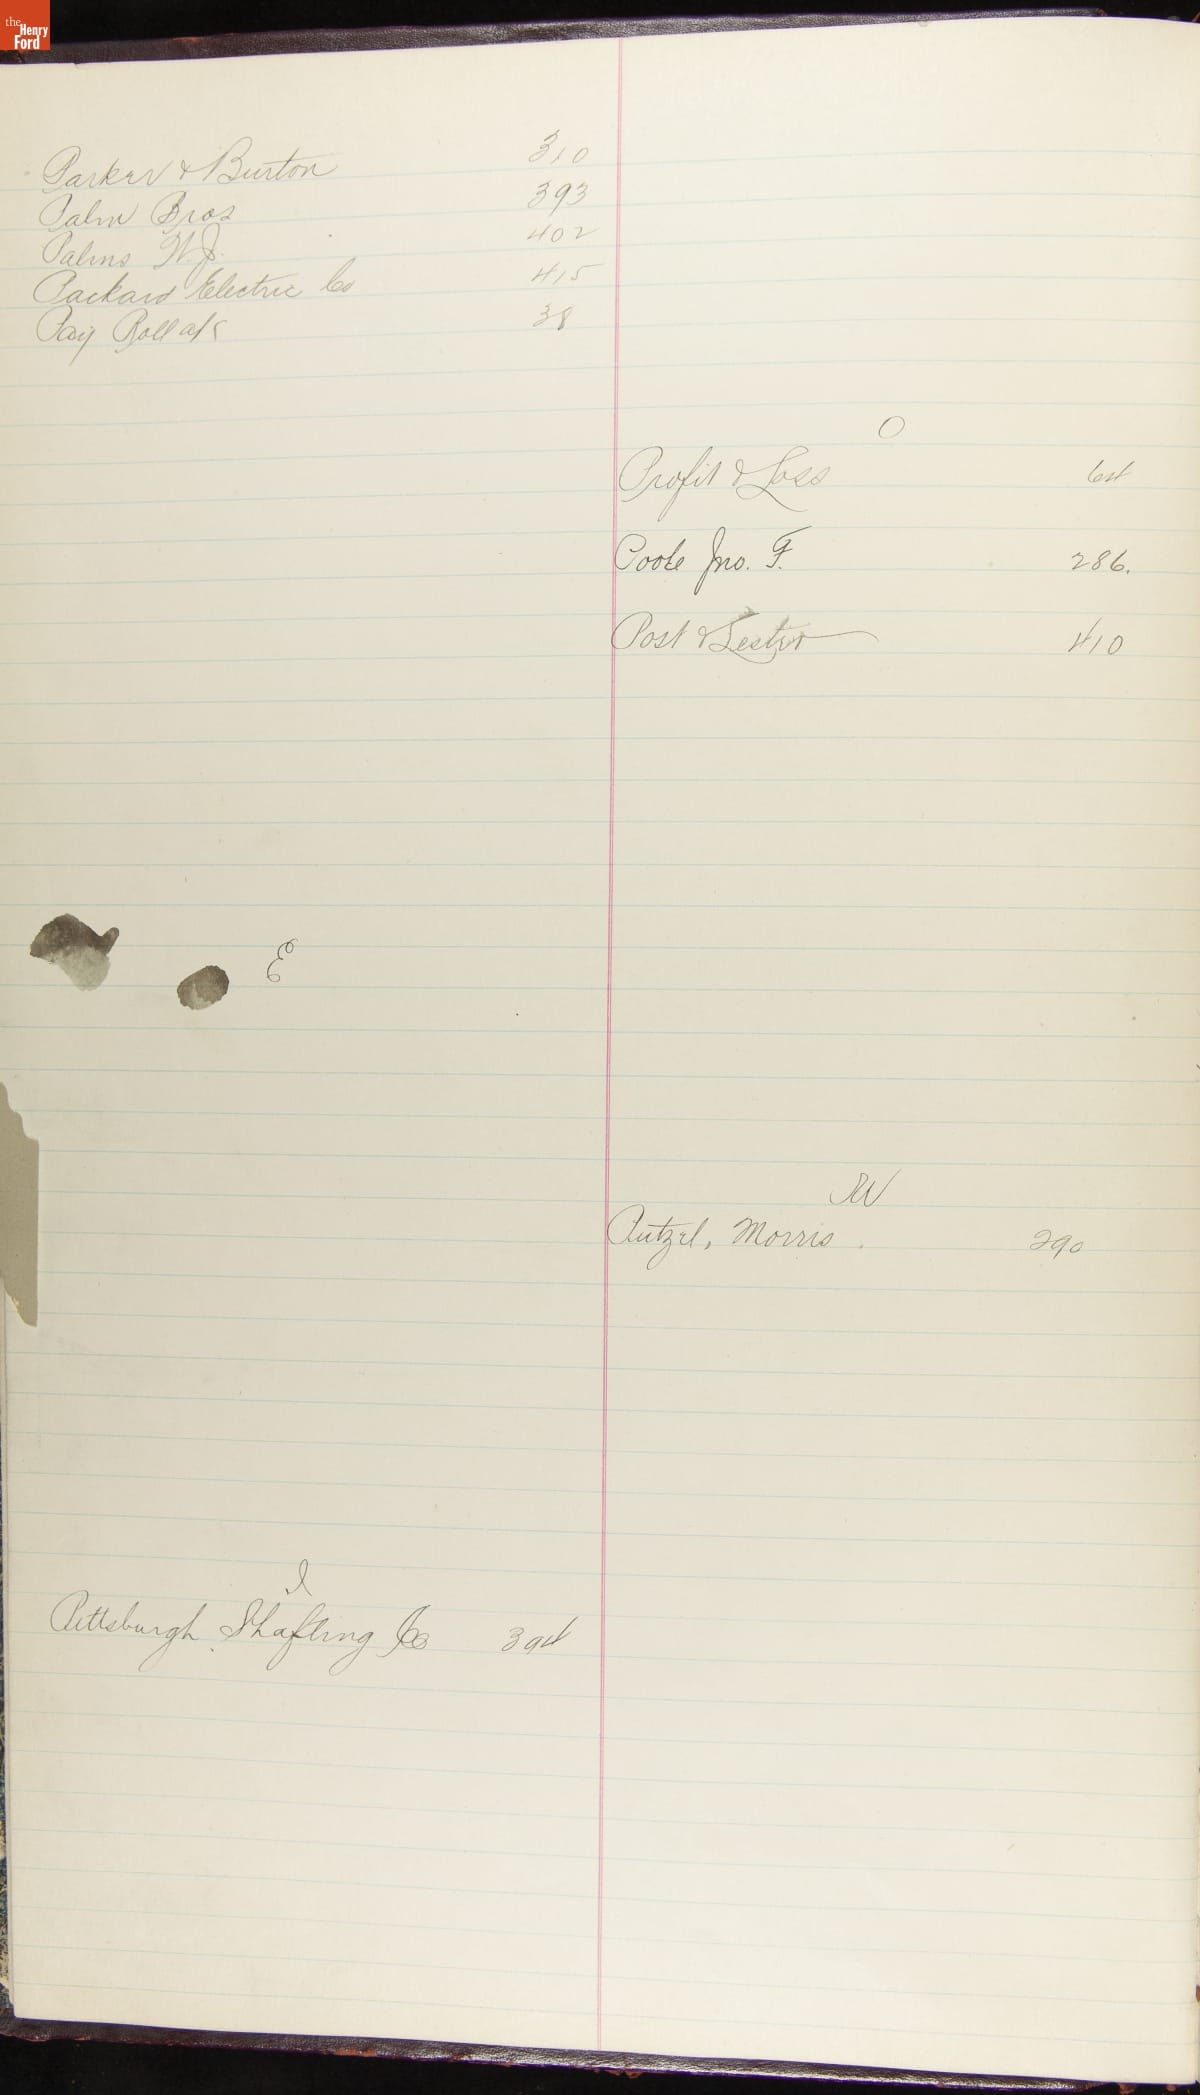 the Henry Ford
Parker & Burton 310
Palm Bros 393
Palms W. J. 402
Packard Electric Co 415
Pay Roll a/c 38
O
Profit & Loss 64
Poole Jno. F. 286.
Post & Lester 410
E
Putzel, Morris 290
I
Pittsburgh Shafting Co 394